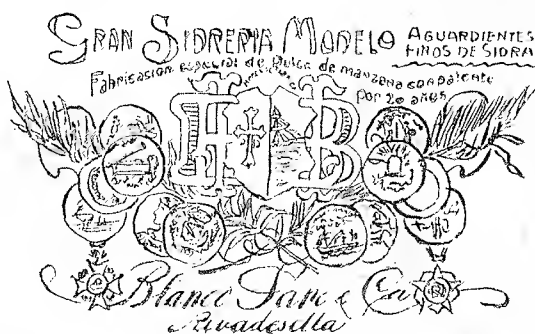 GRAN SIDRERIA MODELO
AGUARDIENTES
FINOS DE SIDRA
Fabricacion especial de Dulce de manzana con patente
por 20 años
H B
Blanco Sanc & Cª
Rivadesella